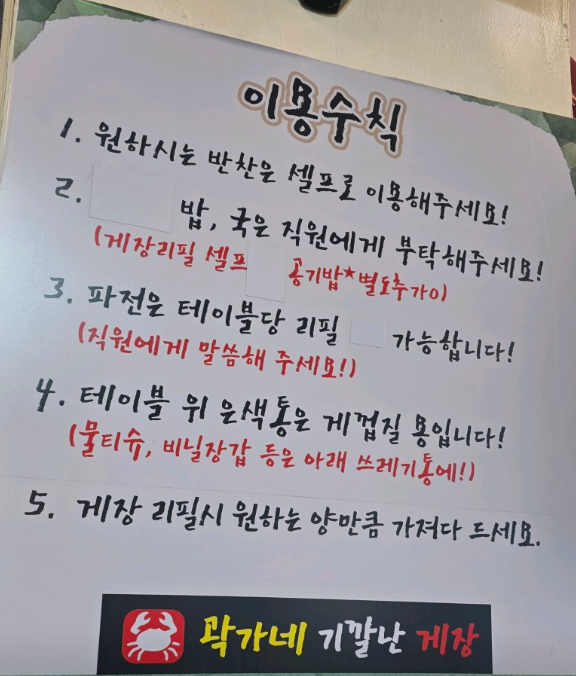 이용수칙
1. 원하시는 반찬은 셀프로 이용해주세요!
2. 밥, 국은 직원에게 부탁해주세요!
(게장리필 셀프 공기밥*별도추가O)
3. 파전은 테이블당 리필 가능합니다!
(직원에게 말씀해 주세요!)
4. 테이블 위 은색통은 게껍질 용입니다!
(물티슈, 비닐장갑 등은 아래 쓰레기통에!)
5. 게장 리필시 원하는 양만큼 가져다 드세요.
곽가네 기깔난 게장